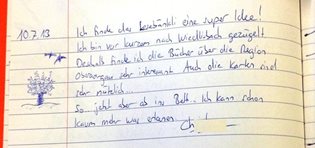 10.7.13
Ich finde das Lesebänkli eine super Idee!
Ich bin vor kurzem nach Wiedlisbach gezügelt.
Deshalb finde ich die Bücher über die Region
Oberaargau sehr interessant. Auch die Karten sind
sehr nützlich...
So... jetzt aber ab ins Bett... Ich kann schon
kaum mehr was erkennen.